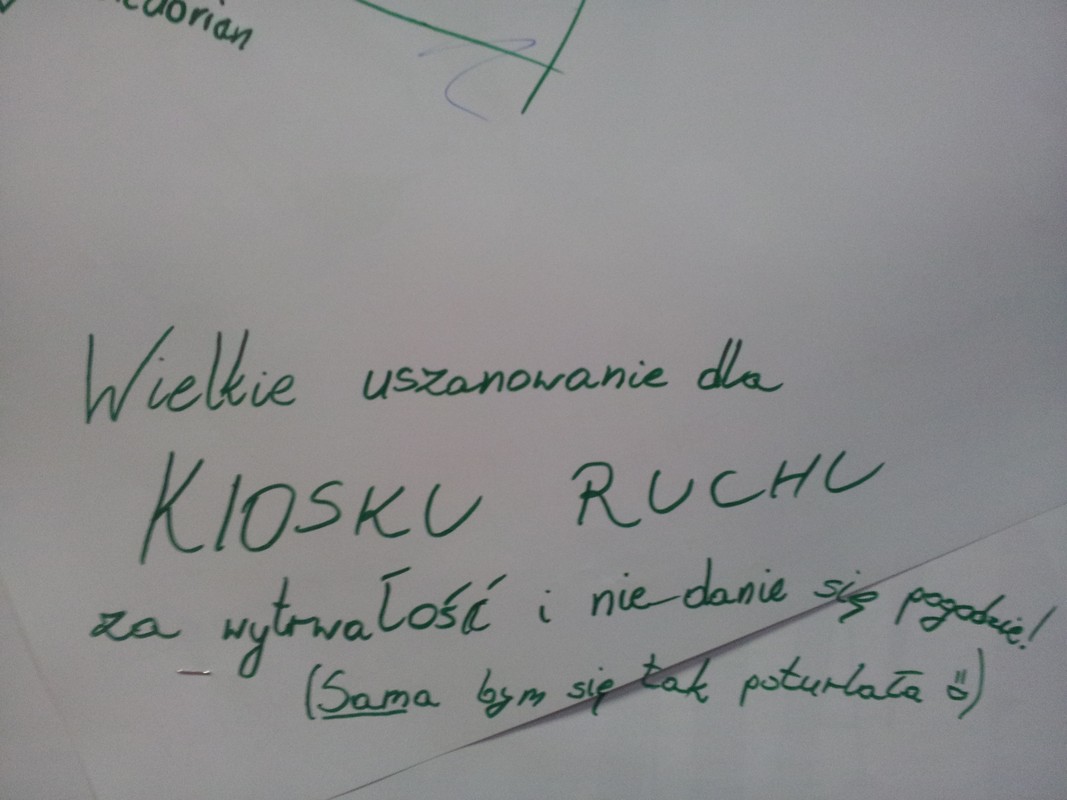 Wielkie uszanowanie dla
KIOSKU RUCHU
za wytrwałość i nie danie się pogodzie!
(Sama bym się tak poturlała ü)